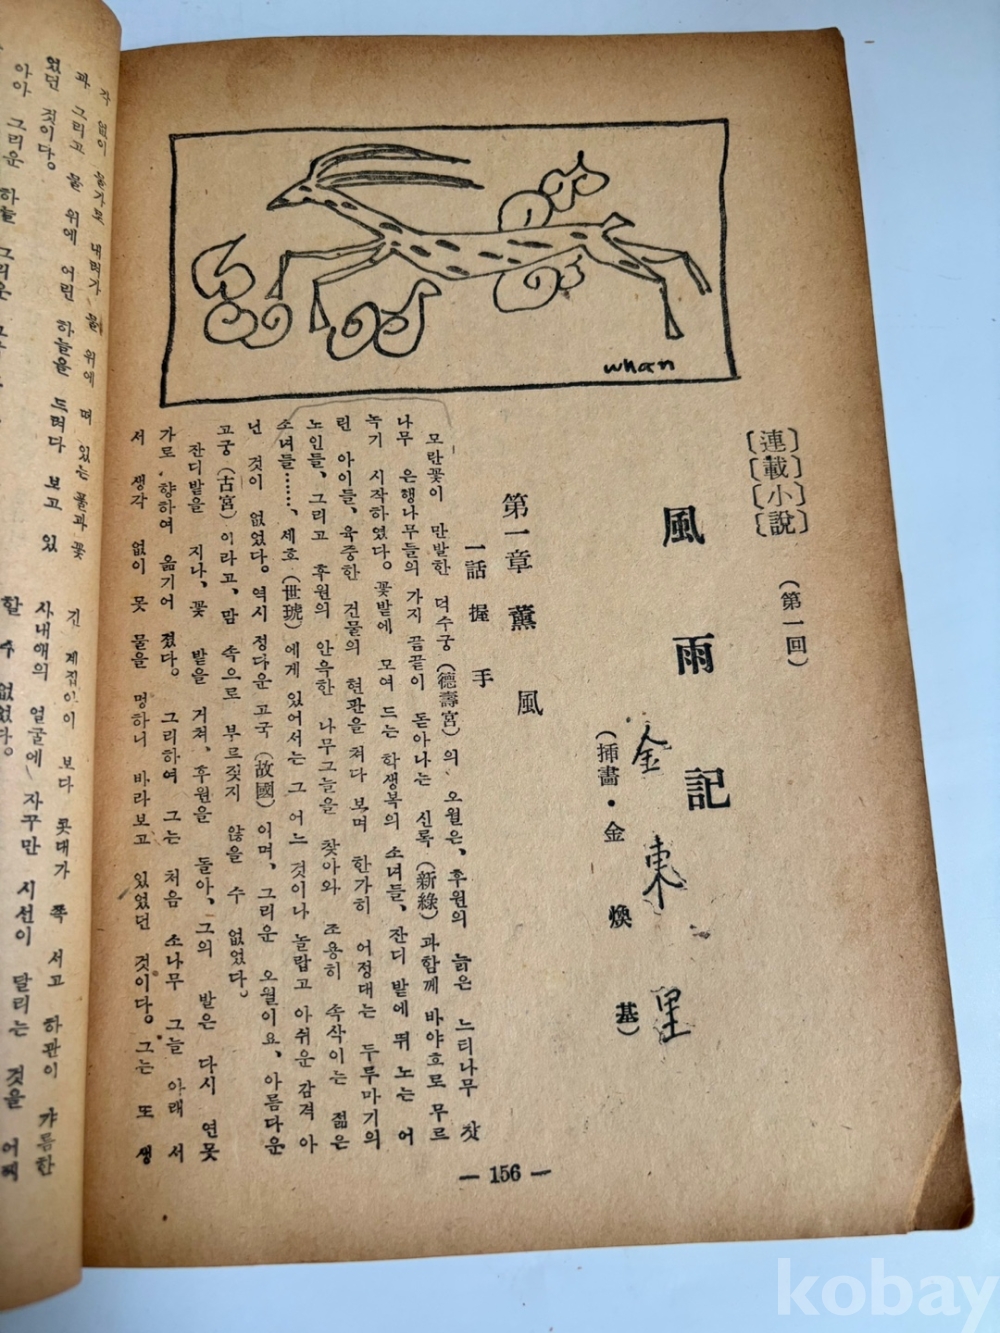 whan
〔連載小說〕
(第一回)
風雨記
金東里
(揷畵・金煥基)
第一章 薰風
一話 握手
모란꽃이 만발한 덕수궁(德壽宮)의 오월은, 후원의 늙은 느티나무 잣
나무 은행나무들의 가지 끔끝이 돋아나는 신록(新綠)과함께 바야흐로 무르
녹기 시작하였다. 꽃밭에 모여 드는 학생복의 소녀들, 잔디 밭에 뛰 노는 어
린 아이들, 육중한 건물의 현관을 쳐다 보며 한가히 어정대는 두루마기의
노인들, 그리고 후원의 안윽한 나무그늘을 찾아와 조용히 속삭이는 젊은
소녀들……, 세호(世琥)에게 있어서는 그 어느 것이나 놀랍고 아쉬운 감격 아
닌 것이 없었다. 역시 정다운 고국(故國)이며, 그리운 오월이요, 아름다운
고궁(古宮)이라고, 맘 속으로 부르짖지 않을 수 없었다.
잔디밭을 지나, 꽃 밭을 거쳐, 후원을 돌아, 그의 발은 다시 연못
가로 향하여 옮기어 졌다. 그리하여 그는 처음 소나무 그늘 아래 서
서 생각 없이 못 물을 멍하니 바라보고 있었던 것이다. 그는 또 생
— 156 —
각 없이 물가로 내려가 물 위에 떠 있는 풀과 꽃
과 그리고 물 위에 어린 하늘을 드려다 보고 있
었던 것이다.
아아 그리운 하늘 그리운
긴 계집아이 보다 콧대가 쪽 서고 하관이 갸름한
사내애의 얼굴에 자꾸만 시선이 달리는 것을 어찌
할 수 없었다.
kobay